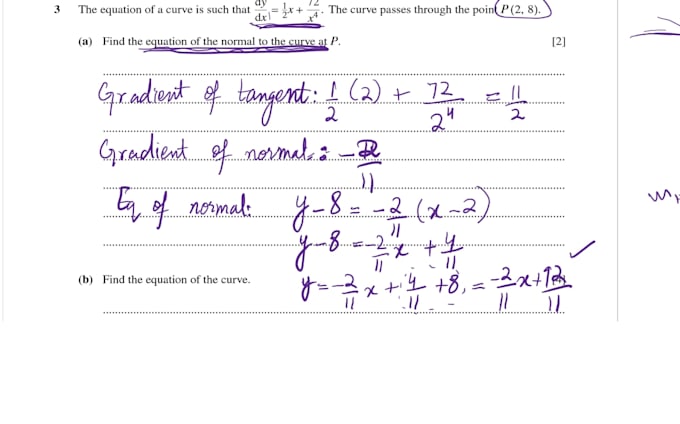 3 The equation of a curve is such that dy/dx = 1/2 x + 72/x⁴. The curve passes through the point P(2, 8).
(a) Find the equation of the normal to the curve at P. [2]
Gradient of tangent: 1/2 (2) + 72/2⁴ = 11/2
Gradient of normal: -2/11
Eq of normal: y-8 = -2/11 (x-2)
y-8 = -2/11 x + 4/11
(b) Find the equation of the curve.
y = -2/11 x + 4/11 + 8, = -2/11 x + 12/11